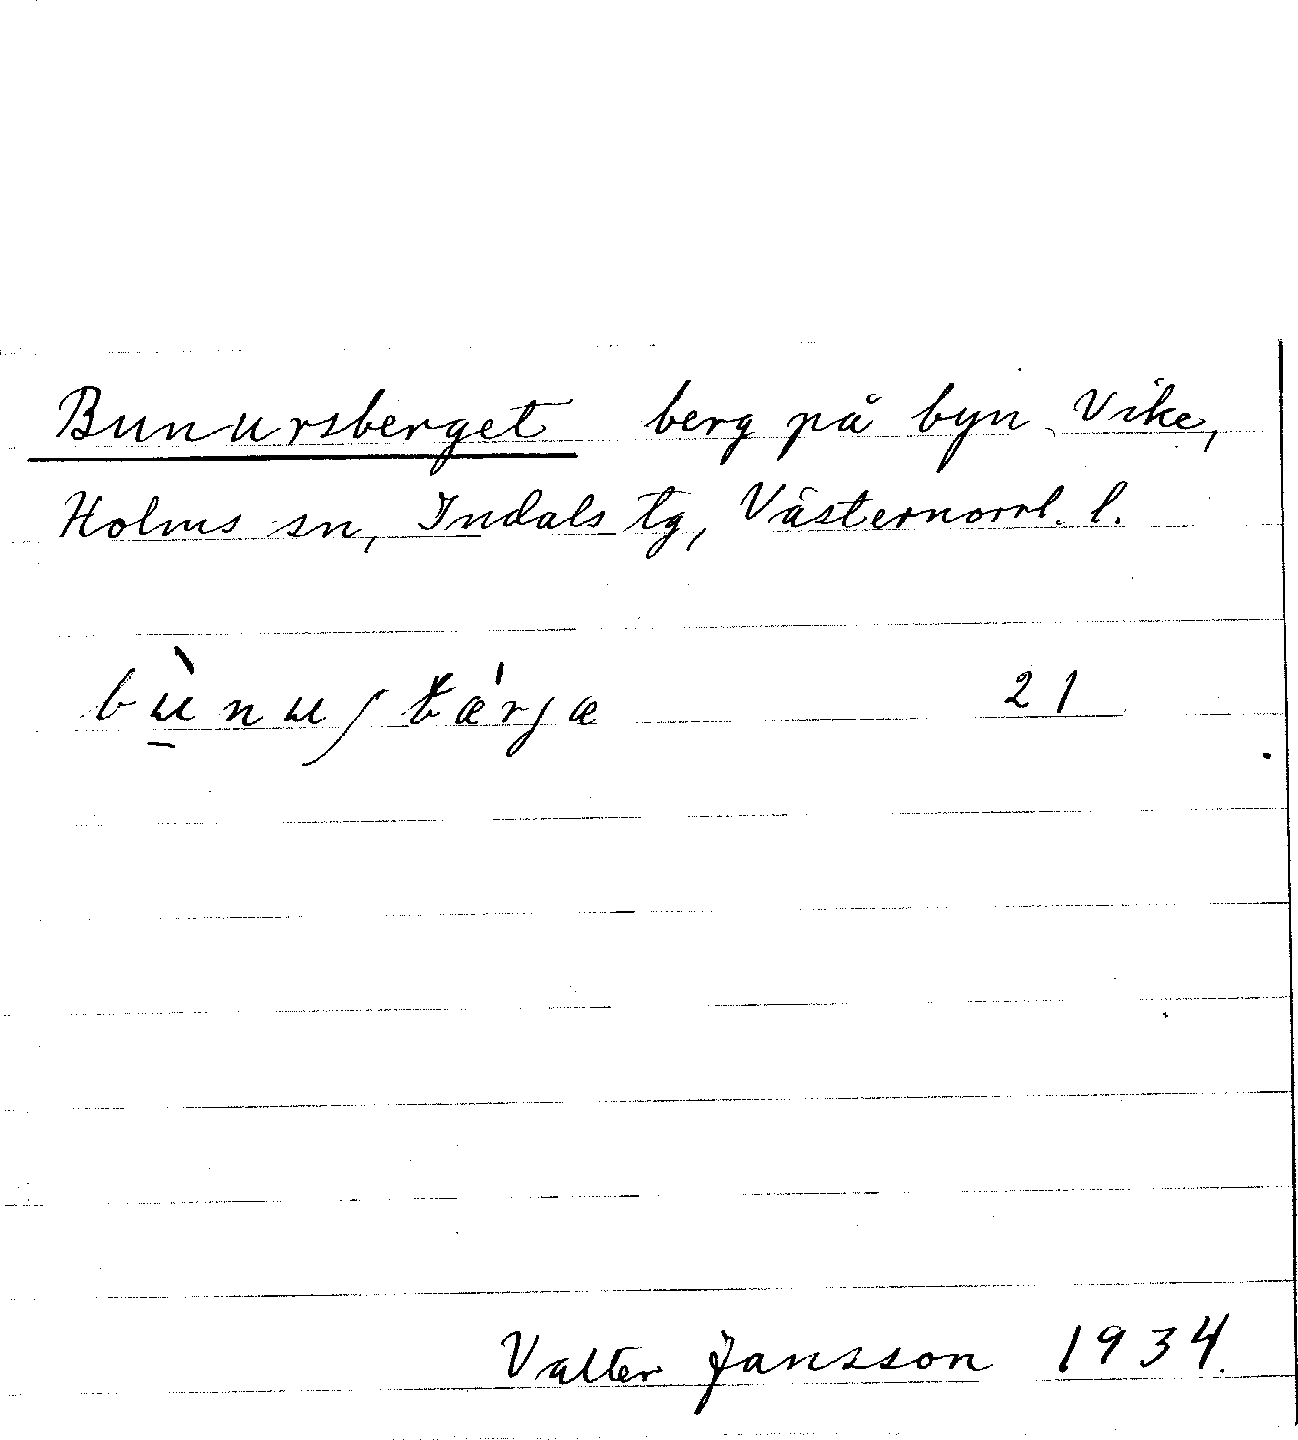 Bunursberget berg på byn Vike,
Holms sn, Indals tg, Västernorrl. l.
bùnuʃbærjæ 21
Valter Jansson 1934.